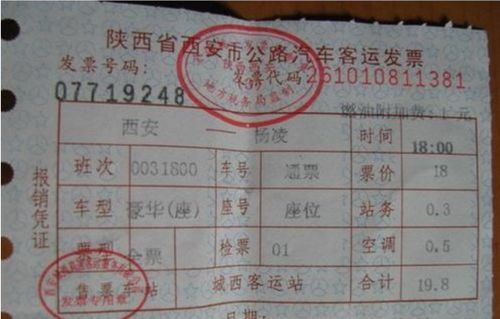 陕西省西安市公路汽车客运发票
发票号码: 发票代码 261010811381
07719248 燃油附加费:1元
西安 — 杨凌 时间 18:00
班次 0031800 车号 通票 票价 18
车型 豪华(座) 座号 座位 站务 0.3
票型 全票 检票 01 空调 0.5
售票车站 城西客运站 合计 19.8
日期:
报销凭证
地方税务局监制
发票专用章